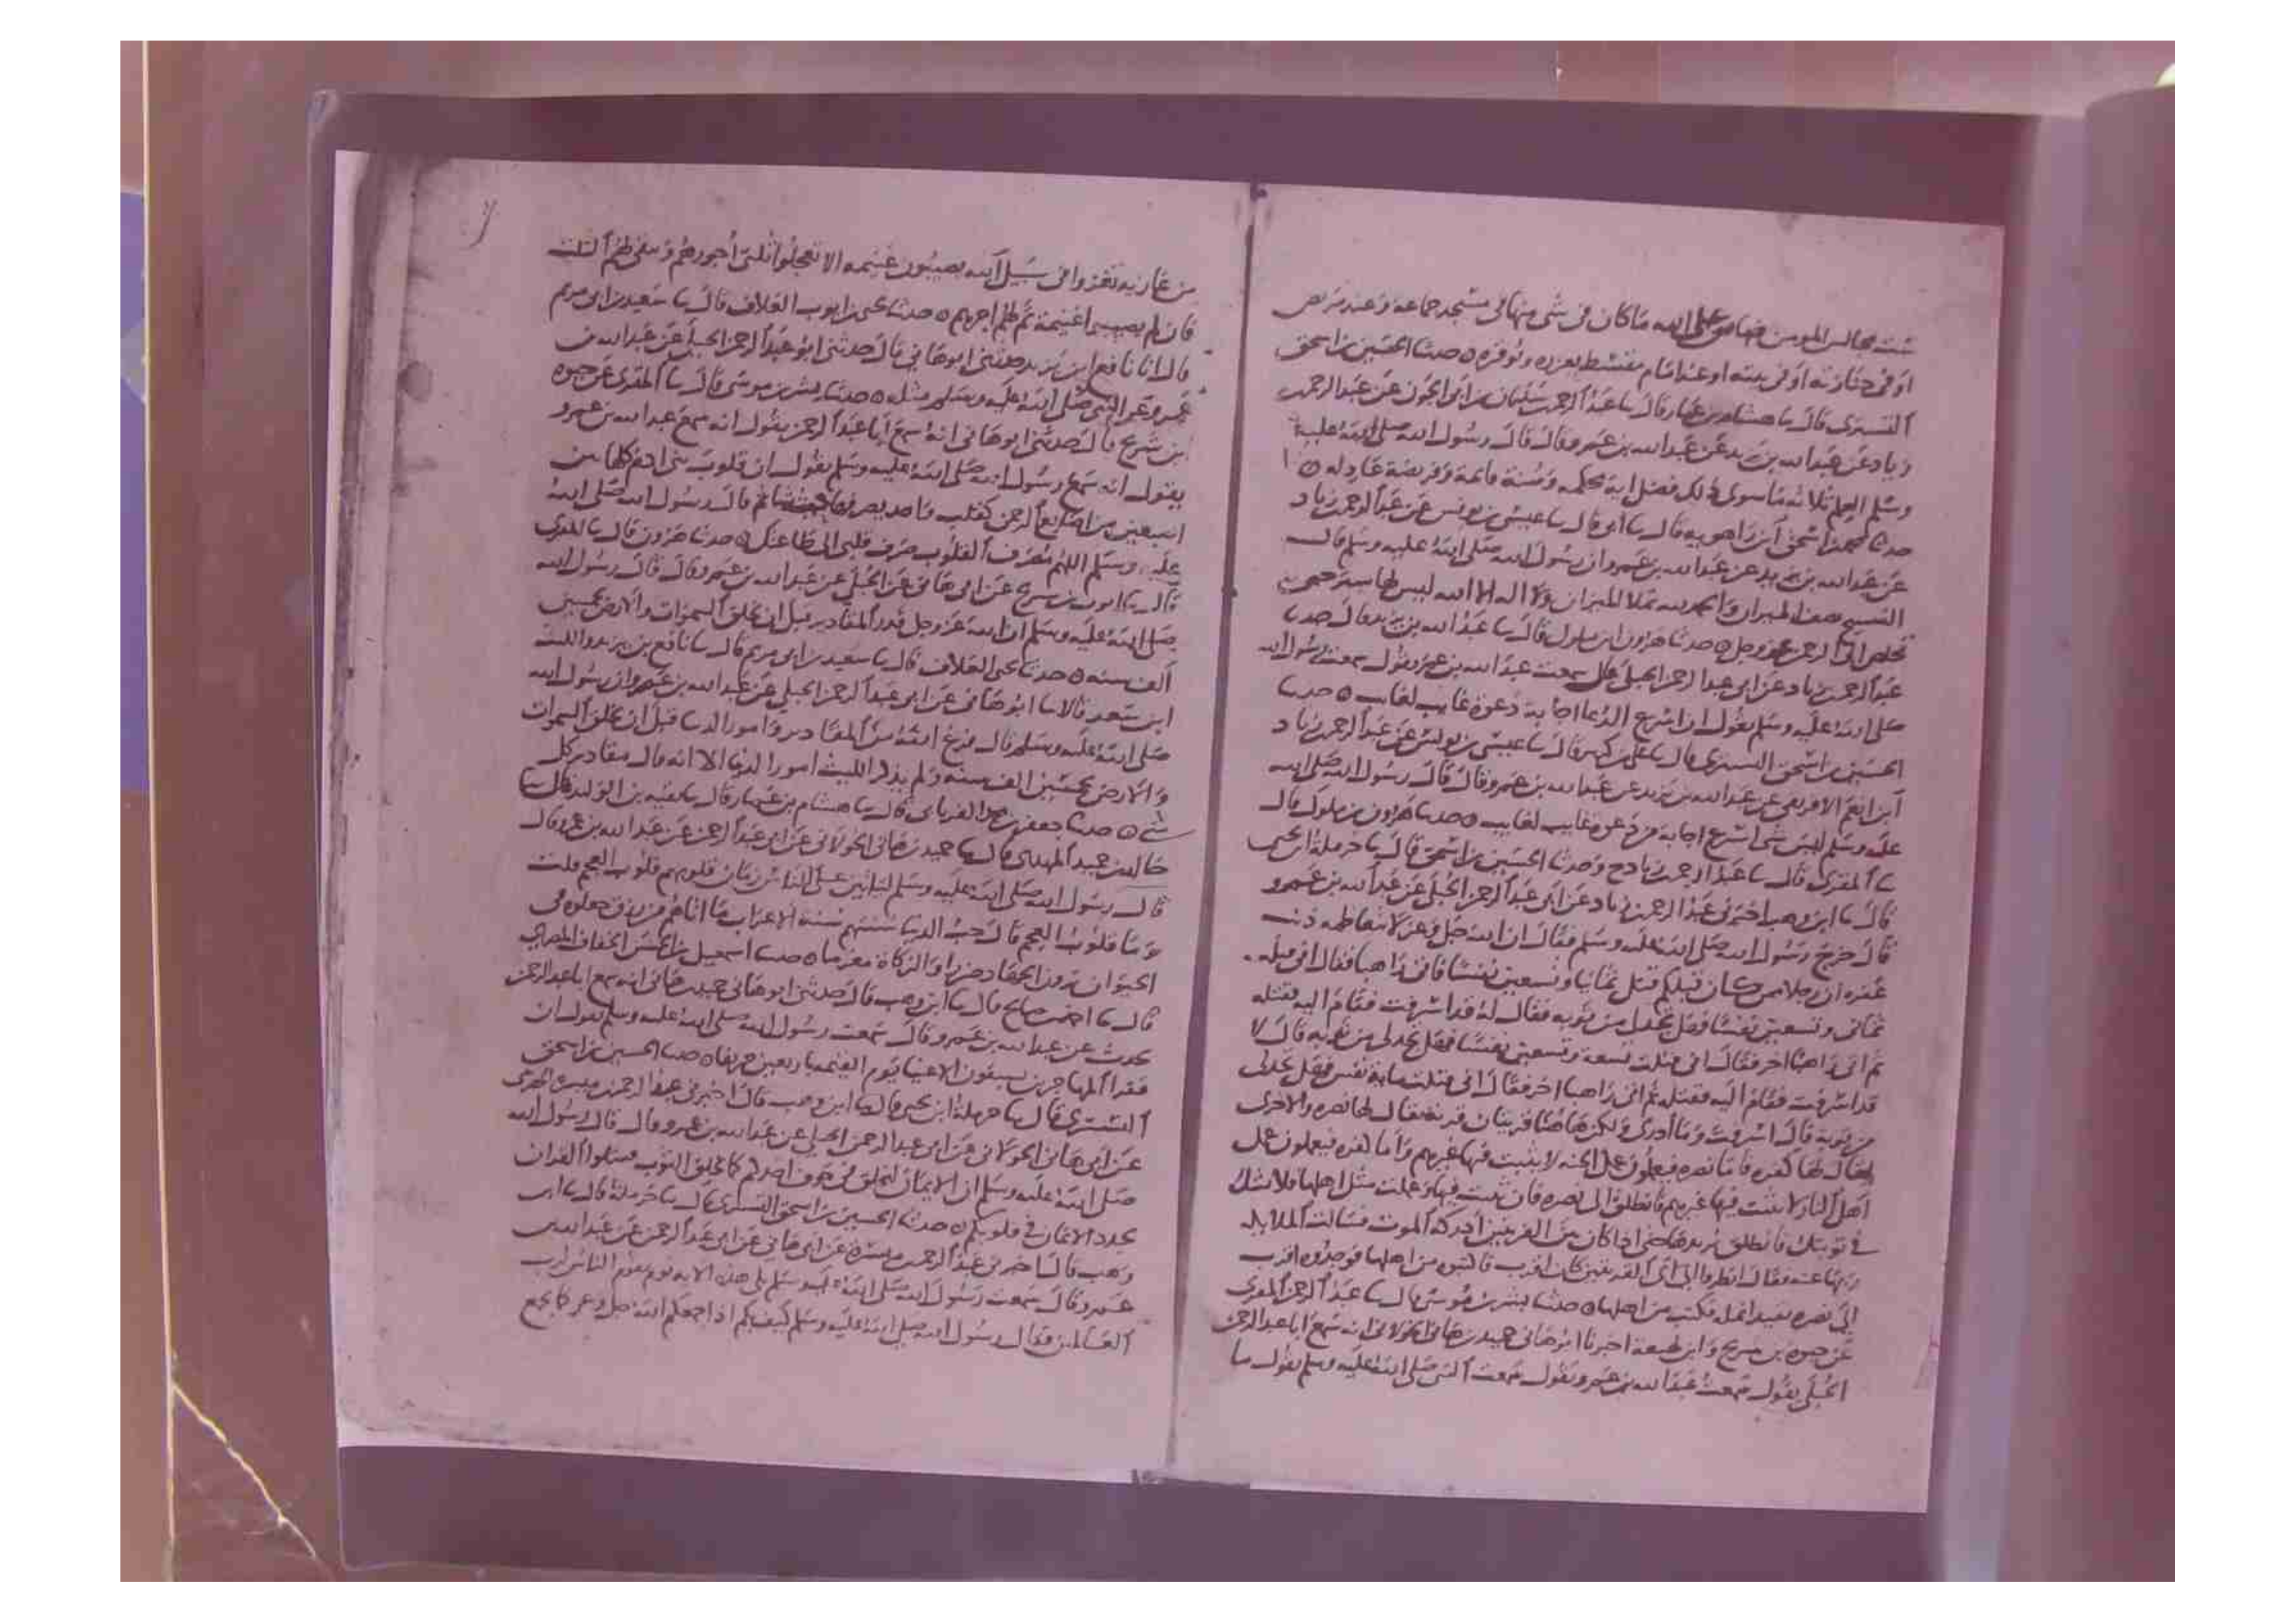 ست مجالس المومن ضامن على الله ما كان في شي منها في مسجد جماعة وعند مريض
او في جنازته او في بيته او عند امام مقسط يعزره وتوقره ه حدثنا الحسين بن اسحق
التستري قال سا هشام بن عمار قال سا عبد الرحمن سليمان بن ابي الجون عن عبد الرحمن بن
زياد عن عبد الله بن يزيد عن عبد الله بن عمرو قال قال رسول الله صلى الله عليه
وسلم العلم ثلاثه ما سوى ذلك فضل اية محكمه وسنة قائمة وفريضة عادله ه
حدثنا محمد بن اسحق ابن راهويه قال سا ابي قال سا عيسى بن يونس عن عبد الرحمن بن زياد
عن عبد الله بن يزيد عن عبد الله بن عمرو ان رسول الله صلى الله عليه وسلم قال
التسبيح نصف الميزان والحمد لله تملا الميزان ولا اله الا الله ليس لها ستر حتى
تخلص الى الرحمن عز وجل ه حدثنا هرون ابن ملول قال سا عبد الله بن يزيد قال حدثنا
عبد الرحمن بن زياد عن ابي عبد الرحمن الحبلي قال سمعت عبد الله بن عمرو يقول سمعت رسول الله
صلى الله عليه وسلم يقول ان اسرع الدعا اجابة دعوة غايب لغايب ه حدثنا
الحسين بن اسحق التستري قال سا علي بن بحر قال سا عيسى بن يونس عن عبد الرحمن بن زياد
ابن انعم الافريقي عن عبد الله بن يزيد عن عبد الله بن عمرو قال قال رسول الله صلى الله
عليه وسلم ليس شي اسرع اجابة من دعوة غايب لغايب ه حدثنا هرون بن ملول قال
سا المقرئ قال سا عبد الرحمن بن زياد ح وحدثنا الحسين بن اسحق قال سا حرملة ابن يحيى
قال سا ابن وهب اخبرني عبد الرحمن بن زياد عن ابي عبد الرحمن الحبلي عن عبد الله بن عمرو
قال خرج رسول الله صلى الله عليه وسلم فقال ان الله جل وعز لا يتعاظمه ذنب
غفره ان رجلا ممن كان قبلكم قتل ثمانيا وتسعين نفسا فاتى راهبا فقال اني قتلت
ثماني وتسعين نفسا فهل تجد لي من توبه فقال له قد اسرفت فقام اليه فقتله
ثم اتى راهبا اخر فقال اني قتلت تسعة وتسعين نفسا فهل تجد لي من توبه قال لا
قد اسرفت فقام اليه فقتله ثم اتى راهبا اخر فقال اني قتلت ماية نفس فهل تجد لي
من توبة قال اسرفت وما أدري ولكن هاهنا قريتان قريه يقال لها نصره والاخرى
يقال لها كفره فاما نصره فيعملون عمل الجنه لا يثبت فيها غيرهم واما كفره فيعملون عمل
اهل النار لا يثبت فيها غيرهم فانطلق الى نصره فان ثبت فيها وعملت مثل اهلها فلا شك
في توبتك فانطلق يريدها حتى اذا كان بين القريتين ادركه الموت فسالت الملايكه
ربها عنه فقال انظروا الى اي القريتين كان اقرب فاكتبوه من اهلها فوجدوه اقرب
الى نصره بقيد انمله فكتب من اهلها ه حدثنا بشر بن موسى قال سا عبد الرحمن المقرئ
عن حيوه بن شريح وابن لهيعة اخبرنا ابو هاني حميد بن هاني الخولاني انه سمع ابا عبد الرحمن
الحبلي يقول سمعت عبد الله بن عمرو يقول سمعت النبي صلى الله عليه وسلم يقول ما
من غازيه تغزوا في سبيل الله يصيبون غنيمه الا تعجلوا ثلثي أجورهم ويبقى لهم الثلث
فان لم يصيبوا غنيمة تم لهم اجرهم ه حدثنا يحيى بن ايوب العلاف قال سا سعيد بن ابي مريم
قال انا نافع ابن يزيد حدثني ابو هاني قال حدثني ابو عبد الرحمن الحبلي عن عبد الله بن
عمرو عن النبي صلى الله عليه وسلم مثله ه حدثنا بشر بن موسى قال سا المقرئ عن حيوه
ابن شريح قال حدثني ابو هاني انه سمع ابا عبد الرحمن يقول انه سمع عبد الله بن عمرو
يقول انه سمع رسول الله صلى الله عليه وسلم يقول ان قلوب بني ادم كلها بين
اصبعين من اصابع الرحمن كقلب واحد يصرفها حيث شا ثم قال رسول الله صلى الله
عليه وسلم اللهم مصرف القلوب صرف قلبي الى طاعتك ه حدثنا هرون قال سا المقرئ
قال سا حيوه بن شريح عن ابي هاني عن الحبلي عن عبد الله بن عمرو قال قال رسول الله
صلى الله عليه وسلم ان الله عز وجل قدر المقادير قبل ان يخلق السموات والارض بخمسين
الف سنه ه حدثنا يحيى العلاف قال سا سعيد بن ابي مريم قال سا نافع بن يزيد والليث
ابن سعد قالا سا ابو هاني عن ابي عبد الرحمن الحبلي عن عبد الله بن عمرو ان رسول الله
صلى الله عليه وسلم قال فرغ الله من المقادير وامور الدنيا قبل ان يخلق السموات
والارض بخمسين الف سنه ولم يذكر الليث امور الدنيا الا انه قال مقادير كل
شي ه حدثنا جعفر بن محمد الفريابي قال سا هشام بن عمار قال سا بقيه بن الوليد قال سا
خالد بن حميد المهدي قال سا حميد بن هاني الخولاني عن ابي عبد الرحمن عن عبد الله بن عمرو قال
قال رسول الله صلى الله عليه وسلم لياتين على الناس زمان قلوبهم قلوب العجم قلت
وما قلوب العجم قال حب الدنيا سنتهم سنة الاعراب ما اتاهم من رزق جعلوه في
الحيوان يرون الجهاد ضررا والزكاة مغرما ه حدثنا اسمعيل بن الحسن الخفاف المصري
قال سا احمد بن صالح قال سا ابن وهب قال حدثني ابو هاني حميد بن هاني انه سمع ابا عبد الرحمن
يحدث عن عبد الله بن عمرو قال سمعت رسول الله صلى الله عليه وسلم يقول ان
فقرا المهاجرين يسبقون الاغنيا يوم القيمه باربعين خريفا ه حدثنا الحسين بن اسحق
التستري قال سا حرملة ابن يحيى قال سا ابن وهب قال اخبرني عبد الرحمن بن ميسره
عن ابي هاني الخولاني عن ابي عبد الرحمن الحبلي عن عبد الله بن عمرو قال قال رسول الله
صلى الله عليه وسلم ان الايمان ليخلق في جوف احدكم كما يخلق الثوب فسلوا الله ان
يجدد الايمان في قلوبكم ه حدثنا الحسين بن اسحق التستري قال سا حرملة قال سا ابن
وهب قال اخبرني عبد الرحمن بن ميسرة عن ابي هاني عن ابي عبد الرحمن عن عبد الله بن
عمرو قال سمعت رسول الله صلى الله عليه وسلم تلى هذه الايه يوم يقوم الناس لرب
العالمين فقال رسول الله صلى الله عليه وسلم كيف بكم اذا جمعكم الله جل وعز كما يجمع